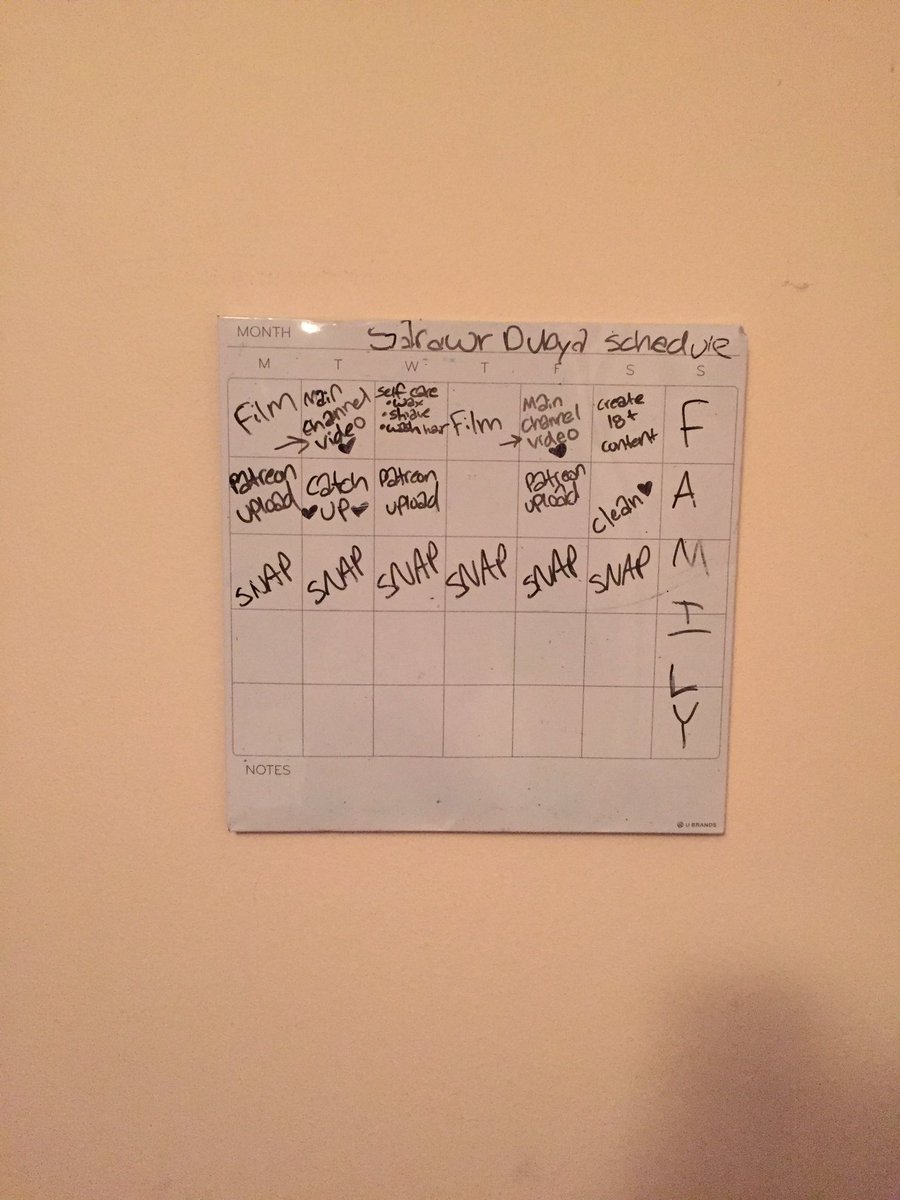 MONTH Sarawr Dubya schedule
M T W T F S S
Film
Main
channel
video
self care
• wax
• shave
• wash hair
Film
Main
channel
video
create
18+
content
F
Patreon
upload
catch
up
Patreon
upload
Patreon
upload
clean
A
SNAP SNAP SNAP SNAP SNAP SNAP
M
I
L
Y
NOTES
U BRANDS